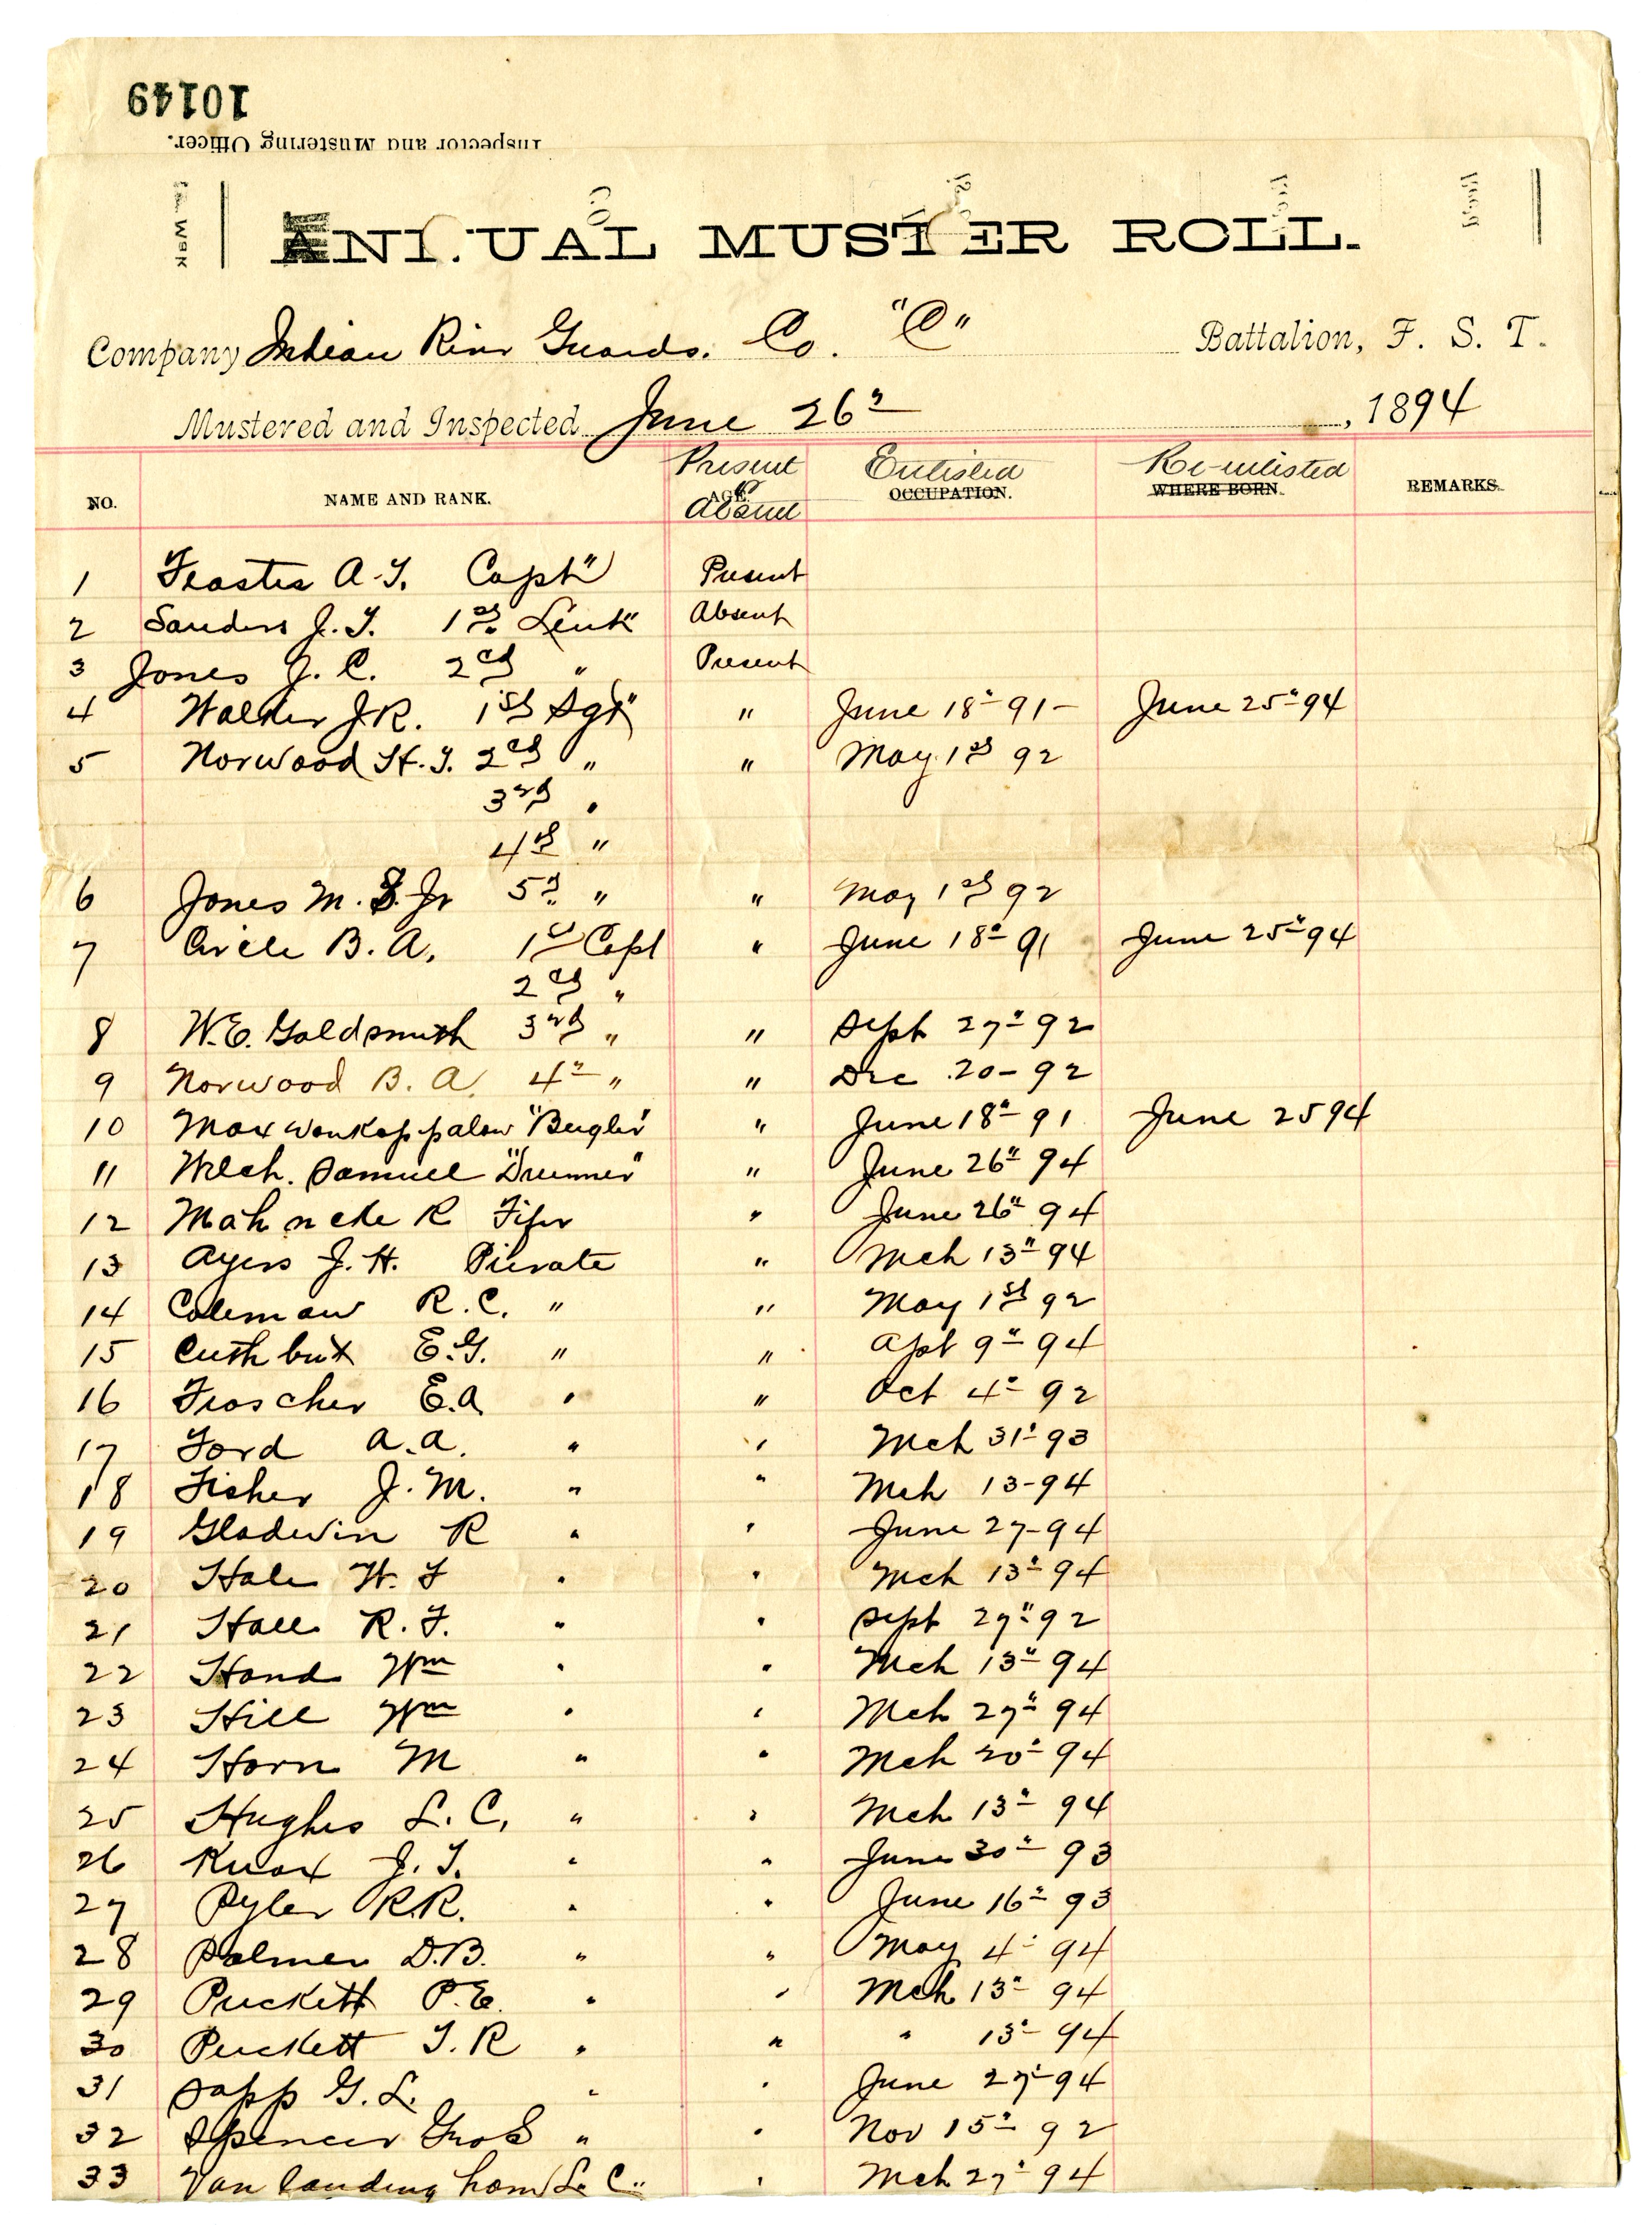 10149
Inspector and Mustering Officer.
ANNUAL MUSTER ROLL.
Company Indian River Guards. Co. "C" Battalion, F. S. T.
Mustered and Inspected June 26", 1894
NO. NAME AND RANK. Present AGE. Absent Enlisted OCCUPATION. Re-enlisted WHERE BORN. REMARKS.
1 Feaster A. T. Capt" Present
2 Sanders J. T. 1st Leut" Absent
3 Jones J. C. 2ed " Present
4 Walker J R. 1st Sgt" " June 18" 91 - June 25" 94
5 Norwood H. T. 2ed " " May 1st 92
3rd "
4th "
6 Jones M. S. Jr 5" " " May 1st 92
7 Circle B. A. 1st Copl " June 18" 91 June 25" 94
2ed "
8 W. E. Goldsmith 3rd " " Sept 27" 92
9 Norwood B. A. 4" " " Dec 20 - 92
10 Max "Bugler" " June 18" 91 June 25 94
11 Welch. Samuel "Drummer" " June 26" 94
12 Mahncke R Fifer " June 26" 94
13 Ayers J. H. Private " Mch 13" 94
14 Coleman R. C. " " May 1st 92
15 Cuthbert E. G. " " Apl 9" 94
16 Froscher E. A " " Oct 4" 92
17 Ford A. A. " " Mch 31" 93
18 Fisher J. M. " " Mch 13 - 94
19 Gladwin R " " June 27 - 94
20 Hale W. F " " Mch 13" 94
21 Hall R. F. " " Sept 27" 92
22 Hand Wm " " Mch 13" 94
23 Hill Wm " " Mch 27" 94
24 Horn M " " Mch 20" 94
25 Hughs L. C. " " Mch 13" 94
26 Knox J. T. " " June 30" 93
27 Pyler R. R. " " June 16" 93
28 Palmer D. B. " " May 4" 94
29 Puckett P. E. " " Mch 13" 94
30 Puckett T. R " " " 13" 94
31 Sapp G. L. " " June 27" 94
32 Spencer Geo S " " Nov 15" 92
33 Van landing ham L. C. " " Mch 27" 94